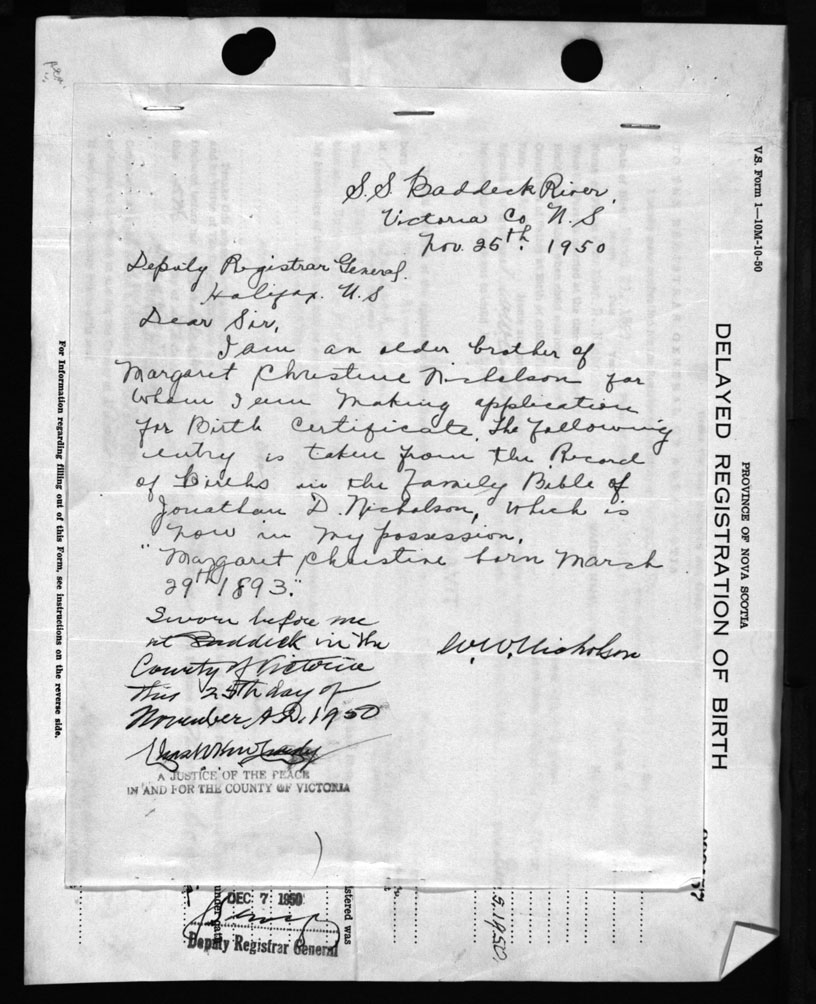 S.S Baddeck River,
Victoria Co, N.S
Nov. 25th. 1950
Deputy Registrar General.
Halifax. N.S
Dear Sir,
I am an older brother of
Margaret Christine Nicholson for
whom I am making application
for Birth Certificate. The following
entry is taken from the Record
of Births in the Family Bible of
Jonathan D. Nicholson, which is
now in my possession.
"Margaret Christine born March
29th 1893."
W. W. Nicholson
Sworn before me
at Baddeck in the
County of Victoria
this 25th day of
November A.D. 1950
A JUSTICE OF THE PEACE
IN AND FOR THE COUNTY OF VICTORIA
DEC 7 1950
Deputy Registrar General
stered was
V.S. Form 1—10M-10-50
PROVINCE OF NOVA SCOTIA
DELAYED REGISTRATION OF BIRTH
For Information regarding filling out of this Form, see instructions on the reverse side.